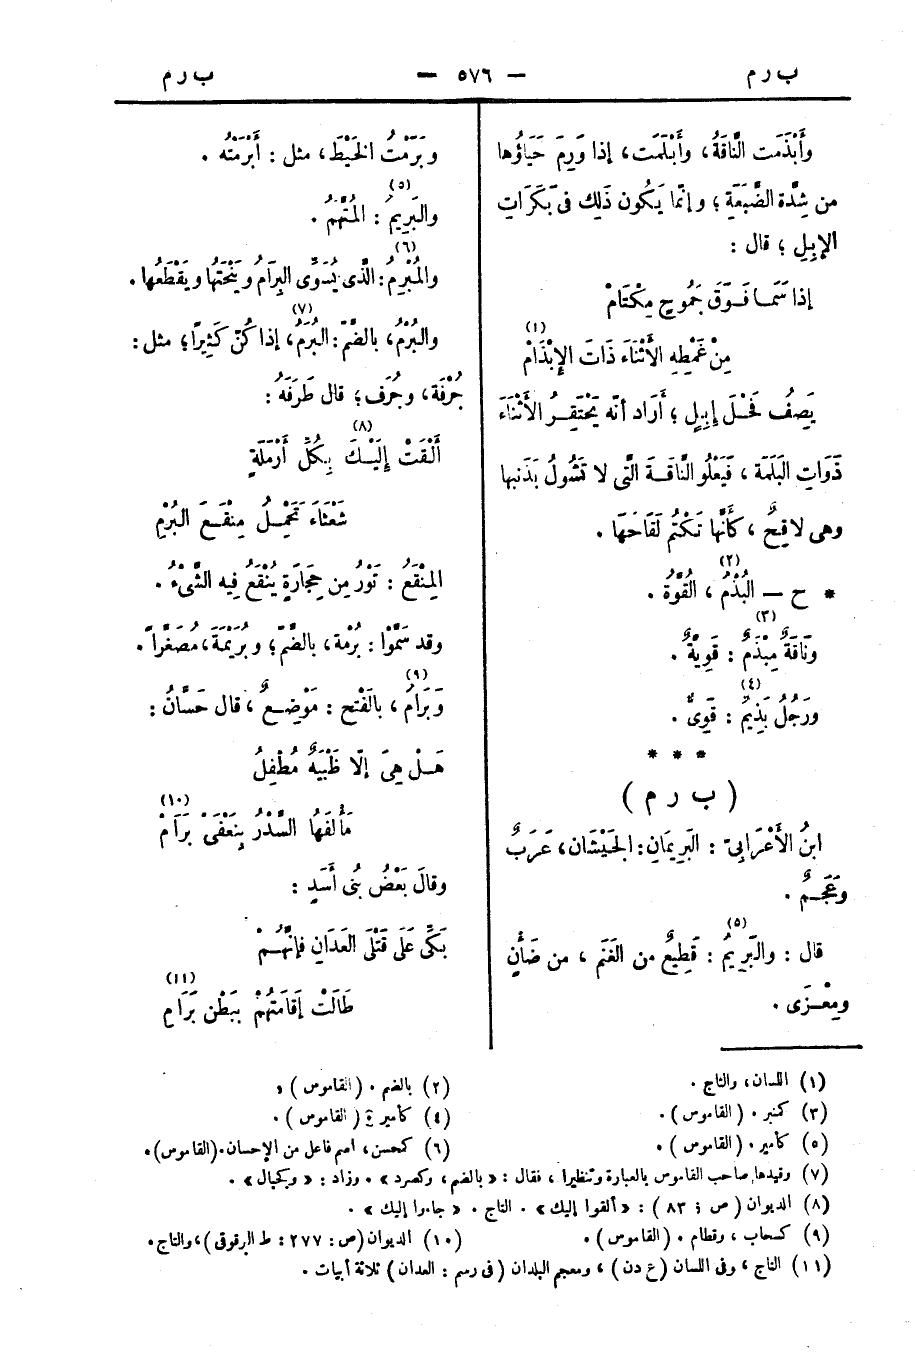 ب ر م
— ٥٧٦ —
ب ر م
وأَبْذَمَت النَّاقَةُ، وأَبْلَمَت، إذا وَرِمَ حَيَاؤُها
من شِدَّة الضَّبَعَةِ؛ وإنَّما يَكُون ذَلِك فى بَكَرَاتِ
الإبِلِ؛ قال :
إذا سَمَــا فَــوْقَ جَمُوحٍ مِكْتَامْ
(١)
مِنْ غَمْطِهِ الأَثْنَاءَ ذَاتَ الإبْذَامْ
يَصِفُ فَحْــلَ إبِــلٍ؛ أَرَاد أنّه يَحْتَقِــرُ الأَثْنَاءَ
ذَوَاتِ البَلَمَة، فَيَعْلُو النَّاقَــةَ الَّتى لا تَشُولُ بِذَنبِها
وهى لاقِحٌ، كَأَنَّها تَكْتُم لَقَاحَهَا .
(٢)
* ح — البُذْمُ، القُوَّةُ .
(٣)
ونَاقَةٌ مِبْذَمٌ : قَوِيَّةٌ .
(٤)
ورَجُلٌ بَذِيمٌ : قَوِىٌّ .
* * *
( ب ر م )
ابنُ الأَعْرَابِىّ : البَرِيمَانِ : الجَيْشَان، عَرَبٌ
وعَجَــمٌ .
(٥)
قال : والبَرِيمُ : قَطِيعٌ من الغَنَم، من ضَأْنٍ
ومِعْــزَى .
وبَرَمْتُ الخَيْطَ، مثل : أَبْرَمْتُه .
(٥)
والبَرِيمُ : المُتَّهَمُ .
(٦)
والمُبْرِمُ : الَّذى يُسَوِّى البِرَامَ ويَنْحَتُها ويَقْطَعُها.
(٧)
والبُرْمُ، بالضَّمّ : البُرَمُ، إذا كُنّ كَثِيرًا؛ مثل :
جُرْفَة، وجُرَف؛ قال طَرَفَةُ :
(٨)
أَلْقَتْ إلَيْــكَ بِكُلِّ أَرْمَلَةٍ
شَعْثَاءَ تَحْمِــلُ مِنْقَــعَ البُرْمِ
المِنْقَعُ : تَوْرٌ من حِجَارَةٍ يُنْقَعُ فيه الشَّىْءُ .
وقد سَمَّوْا : بُرْمَة، بالضَّمّ؛ وبُرَيْمَةَ، مُصَغَّراً .
(٩)
وبَرَامُ، بالفَتْح : مَوْضِــعٌ، قال حَسَّانُ :
هَــلْ هِىَ إلّا ظَبْيَةٌ مُطْفِلُ
(١٠)
مَأْلَفُهَا السِّدْرُ بِنَعْفَىْ بَرَامْ
وقالَ بَعْضُ بُنى أَسَدٍ :
بَكِّى عَلَى قَتْلَى العَدَانِ فإنَّهُــمْ
(١١)
طَالَتْ إقَامَتُهُمْ بِبَطْنِ بَرَامِ
(١) اللسان، والتاج .
(٢) بالضم . (القاموس) .
(٣) كمنبر . (القاموس) .
(٤) كأمير : (القاموس) .
(٥) كأمير . (القاموس) .
(٦) كمحسن، اسم فاعل من الإحسان.(القاموس).
(٧) وقيدها صاحب القاموس بالعبارة وتنظيرا، فقال : « بالضم، وكصرد » . وزاد : « وبجبال » .
(٨) الديوان (ص : ٨٣) : « ألقوا إليك » . التاج . « جاءوا إليك » .
(٩) كسحاب، وقطام . (القاموس) .
(١٠) الديوان (ص : ٢٧٧ : ط البرقوقى)، والتاج.
(١١) التاج، وفى اللسان (ع د ن)، ومعجم البلدان (فى رسم : العدان) ثلاثة أبيات .